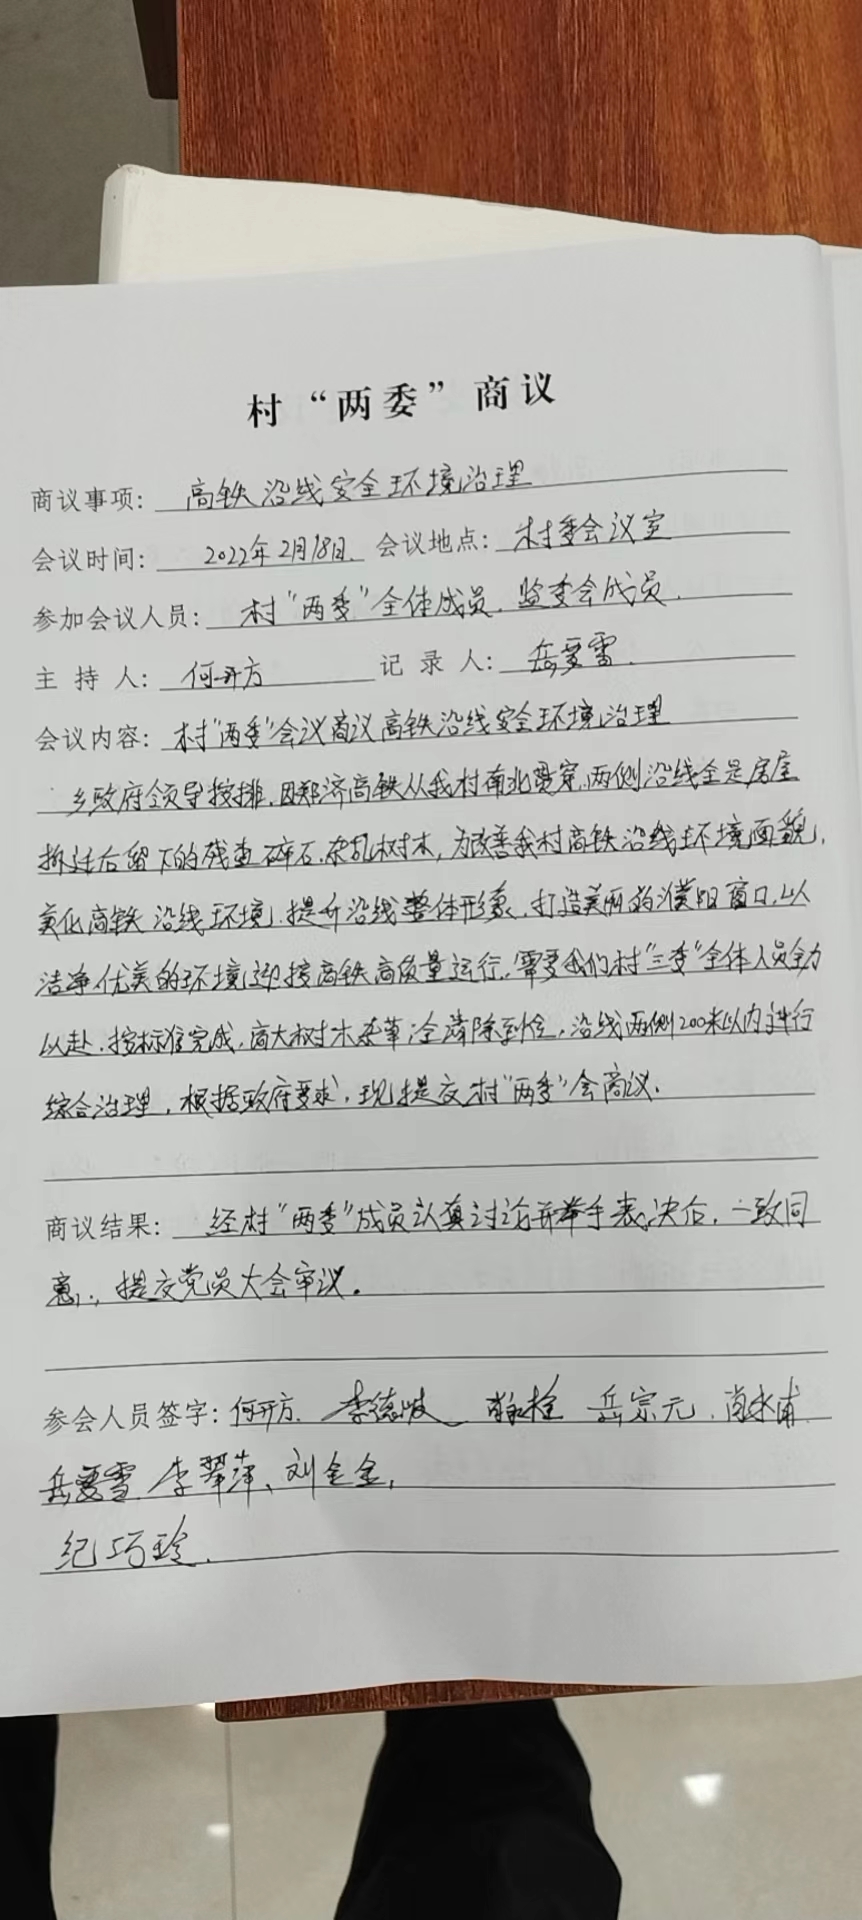 村“两委”商议
商议事项：高铁沿线安全环境治理
会议时间：2022年2月18日 会议地点：村委会议室
参加会议人员：村“两委”全体成员、监委会成员.
主持人：何开方 记录人：岳爱雪.
会议内容：村“两委”会议商议高铁沿线安全环境治理
乡政府领导按排,因郑济高铁从我村南北贯穿,两侧沿线全是房屋
拆迁后留下的残渣碎石、杂乱树木,为改善我村高铁沿线环境面貌,
美化高铁沿线环境,提升沿线整体形象,打造美丽的濮阳窗口,以
洁净优美的环境迎接高铁高质量运行,需要我们村“三委”全体人员全力
以赴,按标准完成,高大树木杂草全清除到位,沿线两侧200米以内进行
综合治理,根据政府要求,现提交村“两委”会商议.
商议结果：经村“两委”成员认真讨论并举手表决后,一致同
意,提交党员大会审议。
参会人员签字：何开方. 李德 岳宗元.
岳爱雪、李翠萍、刘全金,
纪巧玲.